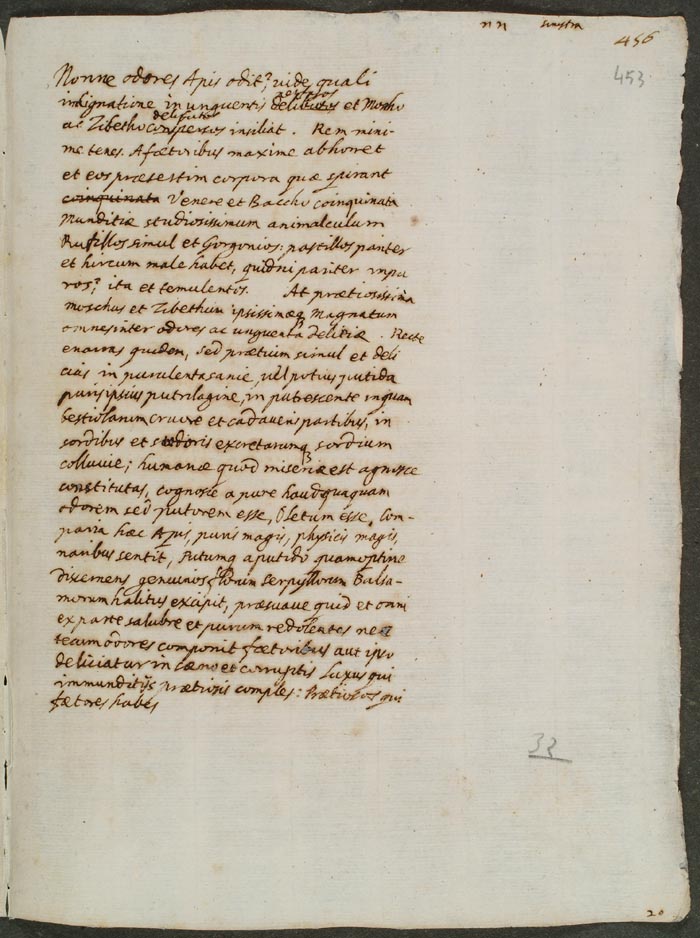 nn sinistra
456
453
Nonne odores Apis odit? vide quali
indignatione in unguentis delibutos et Moscho
delibutos
ac Zibetho conspersos insiliat. Rem mini-
me tenes. A fœtoribus maxime abhoret
et eos præsertim corpora quæ spirant
coinquinata Venere et Baccho coinquinata
Munditiæ studiosissimum animalculum
Rufillos simul et Gorgonios: pastillos pariter
et hircum male habet, quidni pariter impu
ros? ita et temulentos. At prætiosissima
moschus et Zibethum ipsissimæq Magnatum
omnes inter odores ac unguenta deliciæ. Recte
enarras quidem, sed prætium simul et deli
cias in purulenta sanie, vel potius putida
puris ipsius putrilagine, in putrescente inquam
bestiolarum cruore et cadaveris partibus, in
sordibus et sudoris excretarumq sordium
colluvie; humanæ quid miseriæ est agnosce
constitutas, cognosce a pure haudquaquam
odorem sed putorem esse, Oletum esse. Com-
paria hæc Apis, puris magis, physicis magis,
naribus sentit, putumq a putido quam optine
discernens genuinos florum serpyllorum Balsa-
morum halitus excipit, præsuave quid et omni
ex parte salubre et purum redolentes nec
tecum odores componit fœtoribus aut ipso
deliciatur in cæno et corruptis Luxus qui
immunditijs prætiosis comples: Prætiosos qui
fætores habes
32
20